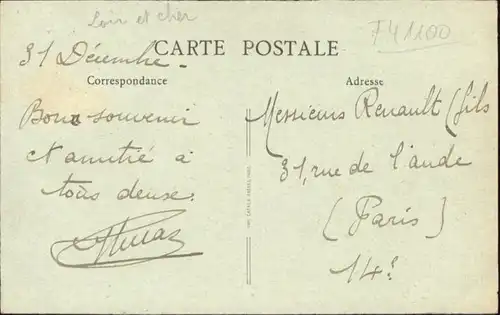 Loir et cher
F41100
31 Décembre -
CARTE POSTALE
Correspondance
Adresse
Bon souvenir
et amitié à
tous deuse.
Messieurs Renault (fils
31, rue de l'aude
(Paris)
14e